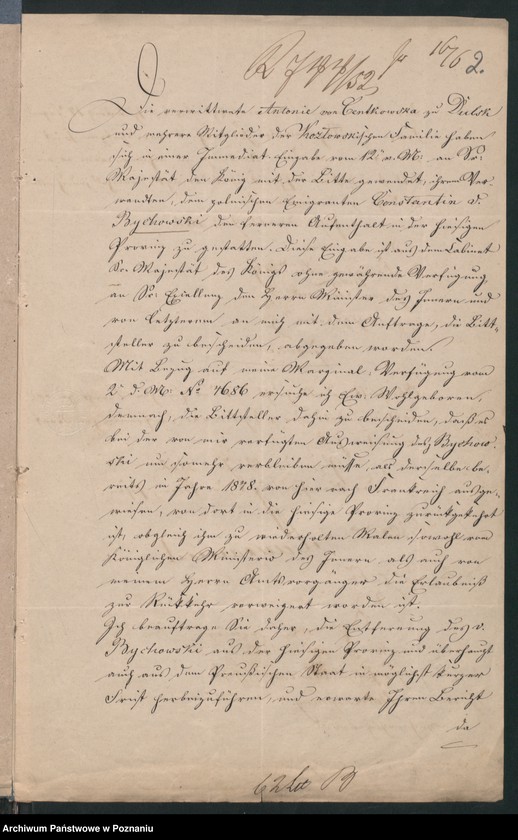 2.
Die verwittwete Antonie von Centkowska zu Dulsk
und mehrere Mitglieder der Kozlowskischen Familie haben
sich in einer Immediat-Eingabe vom 12t v. M. an Se:
Majestät den König mit der Bitte gewendet, ihrem Ver-
wandten, dem polnischen Emigranten Constantin v.
Bychowski den ferneren Aufenthalt in der hiesigen
Provinz zu gestatten. Diese Eingabe ist aus dem Cabinet
Sr. Majestät des Königs ohne gewährende Verfügung
an Se: Excellenz den Herrn Minister des Innern und
von Letzterem an mich mit dem Auftrage, die Bitt-
steller zu bescheiden, abgegeben worden.
Mit Bezug auf meine Marginal-Verfügung vom
2t d. M. No 4686 ersuche ich Ew. Wohlgeboren,
demnach, die Bittsteller dahin zu bescheiden, daß es
bei der von mir verfügten Ausweisung des Bychow-
ski um somehr verbleiben müsse, als derselbe be-
reits im Jahre 1848 von hier nach Frankreich ausge-
wiesen, von dort in die hiesige Provinz zurückgekehrt
ist, obgleich ihm zu wiederholten Malen sowohl vom
Königlichen Ministerio des Innern als auch von
meinem Herrn Amtsvorgänger die Erlaubniß
zur Rückkehr verweigert worden ist.
Ich beauftrage Sie daher, die Entfernung des v.
Bychowski aus der hiesigen Provinz und überhaupt
auch aus dem Preußischen Staat in möglichst kurzer
Frist herbeizuführen, und erwarte Ihren Bericht
da
Archiwum Państwowe w Poznaniu